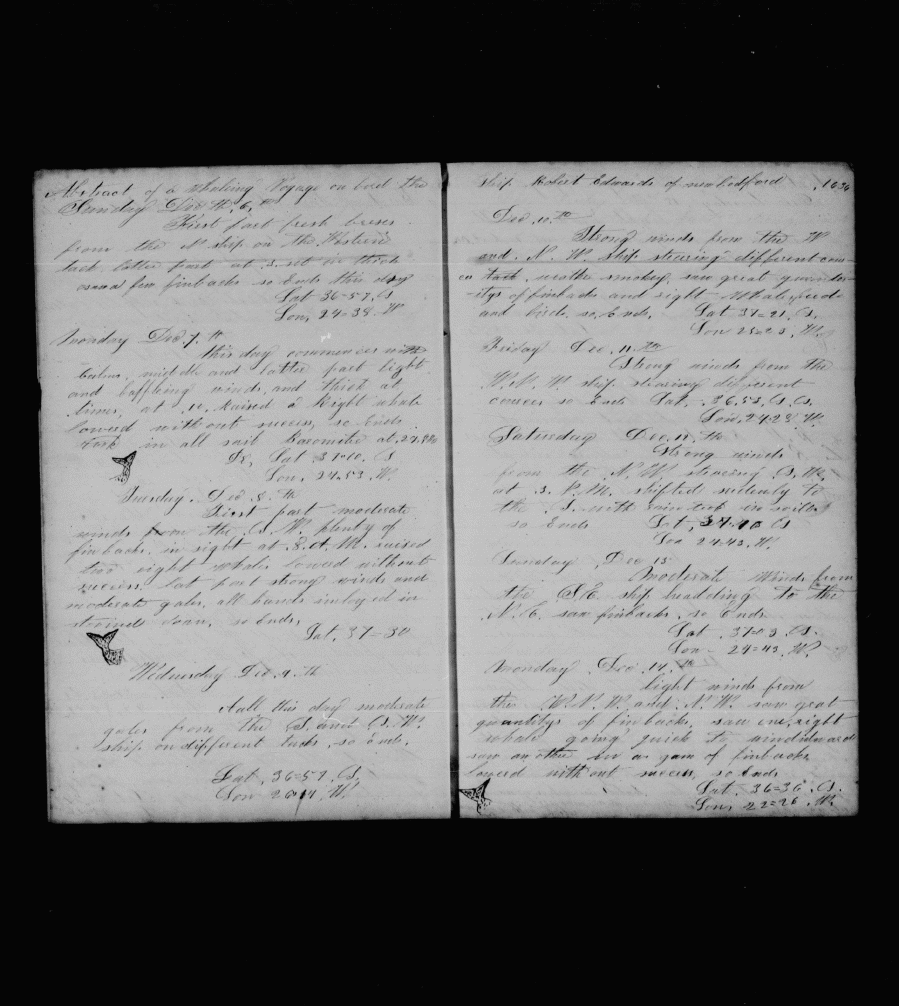 Abstract of a Whaling Voyage on bord the
Sunday Dec th, 6, th
First part fresh breses
from the N. ship on the Western
tack latter part at 3. set in thick
saw a few finbacks so Ends this day
Lat 36=57. S
Lon, 24=38. W
Monday Dec. 7. th
this day commences with
Calms, middle and latter part light
and baffleing winds, and thick at
times, at 10, Raised a Right whale
lowerd without success, so Ends
took in all sail Baromiter at, 29,
Lat 37=10. S
Lon, 24=53. W.
Tuesday. Dec. 8. th
First part moderate
winds from the S. W. plenty of
finbacks, in sight at 8. A. M. raised
two right whales lowerd without
success. Lat part strong winds and
moderate gales, all hands imloyed in
down, so Ends,
Lat, 37=30
Wednesday Dec. 9. th
Aall this day moderate
gales from the S. and S. W.
ship on different tacks, so Ends.
Lat, 36=59. S,
Lon W.
Ship Robert Edwards of new bedford
Dec. 10. th
Strong winds from the W
and. N. W. ship stearing different cors
tack, weathe smokey, saw great quander-
-itys of finbacks and right Whale feed
and birds, so, Ends. Lat 37=21, S.
Lon 25=23, W.
Friday Dec. 11. th
Strong winds from the
W. N. W. ship stearing different
corses so Ends Lat, 36,53, S.
Lon, 24 28 W.
Saturday Dec. 12. th
Strong winds
from the N. W. stearing S. W.
at 3. P. M. shifted sudenly to
the S. with took in sailes
so Ends Lat, 37.40 S
Lon 24=43. W.
Sunday, Dec 13
Moderate winds from
the S. E. ship headding to the
N. E. saw finbacks, so Ends
Lat. 37=03. S.
Lon. 24=43. W.
Monday Dec. 14. th
light winds from
the W. N. W. and N. W. saw grat
quantitys of finbacks, saw one, right
whale going quick to windwared
saw another in a gam of finbacks
lowerd without success, so Ends
Lat. 36=36. S.
Lon, 22=26. W.